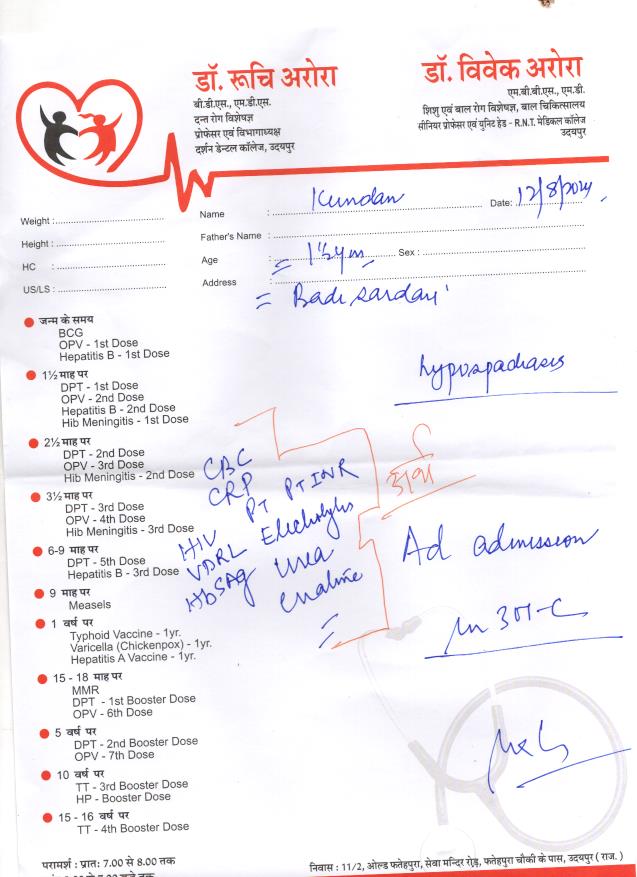 डॉ. रूचि अरोरा
बी.डी.एस., एम.डी.एस.
दन्त रोग विशेषज्ञ
प्रोफेसर एवं विभागाध्यक्ष
दर्शन डेन्टल कॉलेज, उदयपुर
डॉ. विवेक अरोरा
एम.बी.बी.एस., एम.डी.
शिशु एवं बाल रोग विशेषज्ञ, बाल चिकित्सालय
सीनियर प्रोफेसर एवं युनिट हेड - R.N.T. मेडिकल कॉलेज
उदयपुर
Weight :
Height :
HC :
US/LS :
Name : Kundan Date: 12/8/2024
Father's Name :
Age : 1½ yrs Sex :
Address : Badi sardari
जन्म के समय
BCG
OPV - 1st Dose
Hepatitis B - 1st Dose
1½ माह पर
DPT - 1st Dose
OPV - 2nd Dose
Hepatitis B - 2nd Dose
Hib Meningitis - 1st Dose
2½ माह पर
DPT - 2nd Dose
OPV - 3rd Dose
Hib Meningitis - 2nd Dose
3½ माह पर
DPT - 3rd Dose
OPV - 4th Dose
Hib Meningitis - 3rd Dose
6-9 माह पर
DPT - 5th Dose
Hepatitis B - 3rd Dose
9 माह पर
Measels
1 वर्ष पर
Typhoid Vaccine - 1yr.
Varicella (Chickenpox) - 1yr.
Hepatitis A Vaccine - 1yr.
15 - 18 माह पर
MMR
DPT - 1st Booster Dose
OPV - 6th Dose
5 वर्ष पर
DPT - 2nd Booster Dose
OPV - 7th Dose
10 वर्ष पर
TT - 3rd Booster Dose
HP - Booster Dose
15 - 16 वर्ष पर
TT - 4th Booster Dose
hypospadiasis
CBC
CRP
PT PT INR
HIV Electrolytes
VDRL Urea
HbSAg
Ad admission
in 301-C
परामर्श : प्रात: 7.00 से 8.00 तक
निवास : 11/2, ओल्ड फतेहपुरा, सेवा मन्दिर रोड़, फतेहपुरा चौकी के पास, उदयपुर ( राज. )